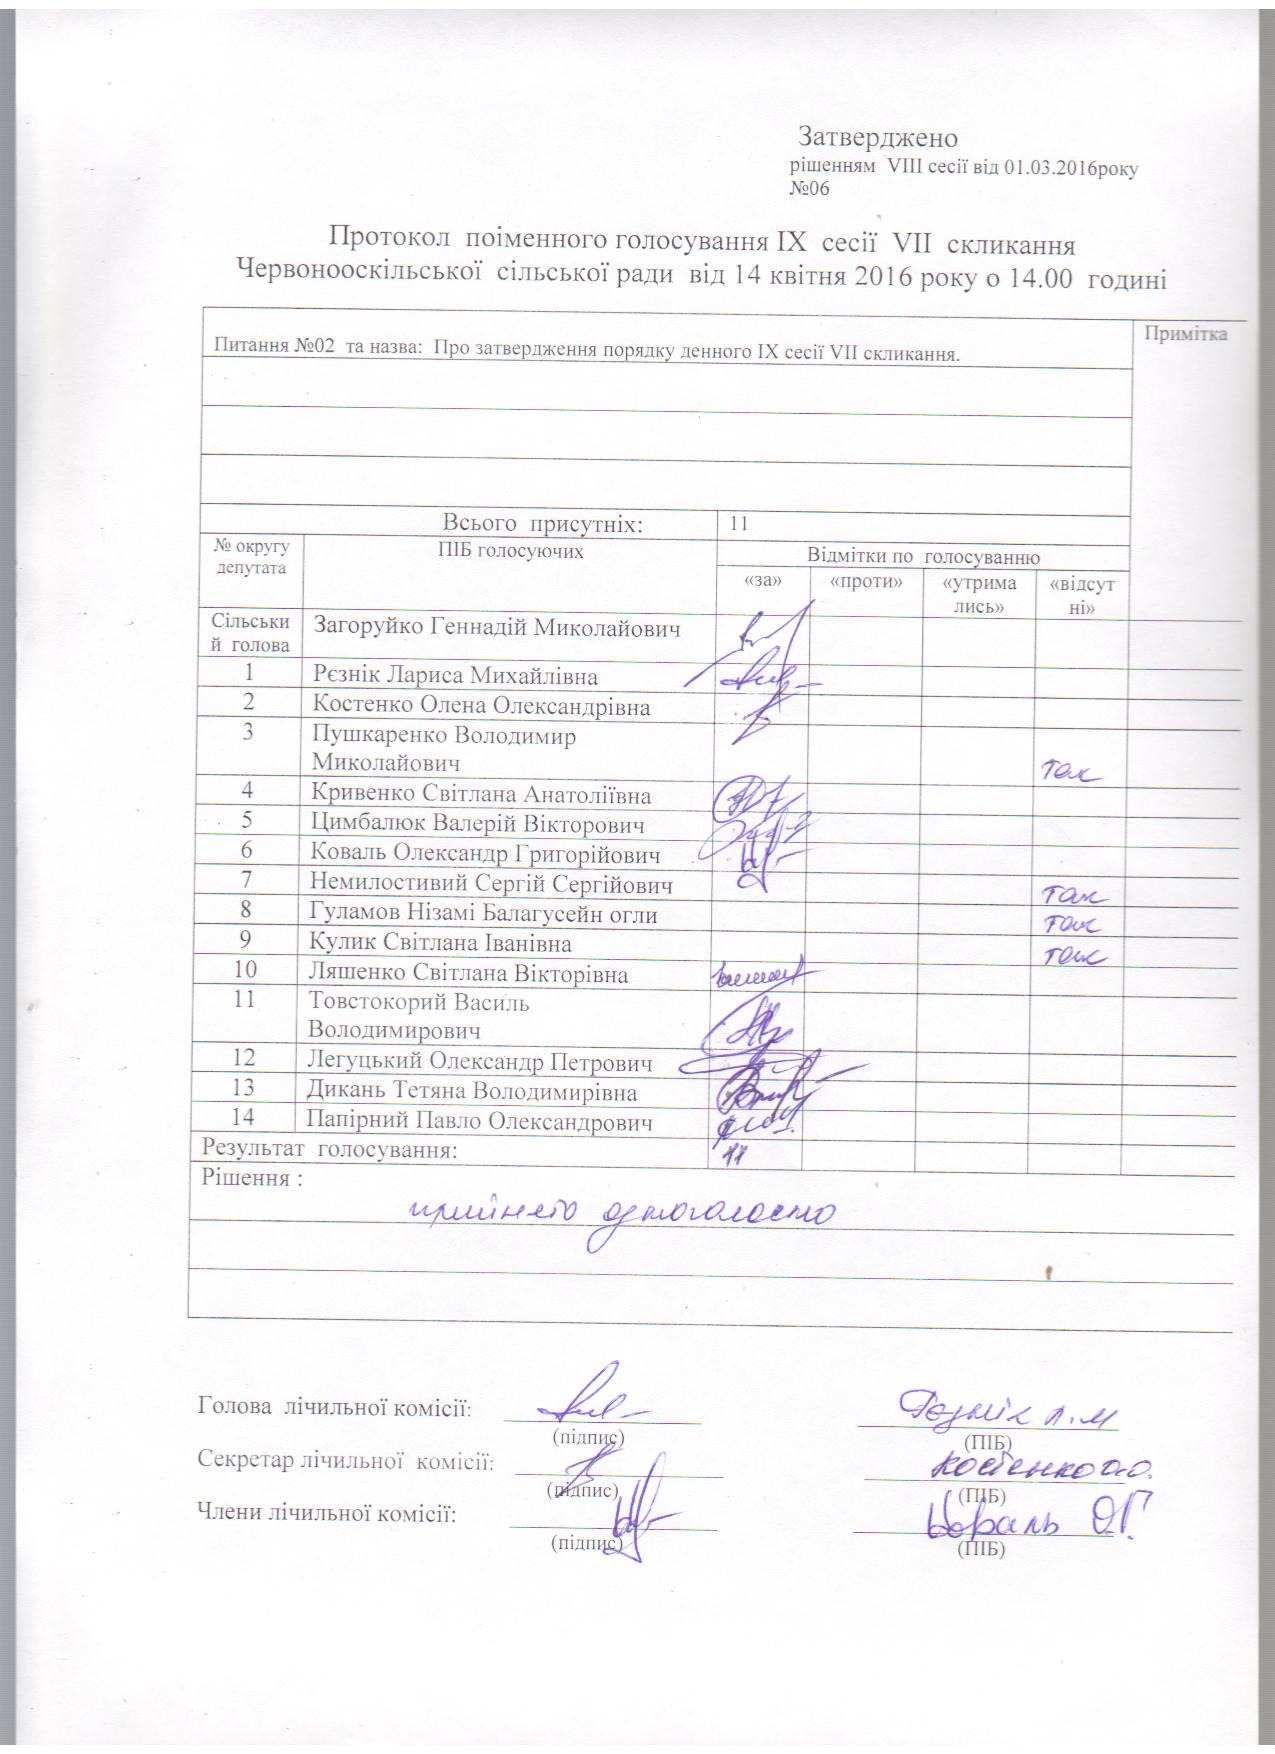 Затверджено
рішенням VIII сесії від 01.03.2016року
№06
Протокол поіменного голосування IX сесії VII скликання
Червонооскільської сільської ради від 14 квітня 2016 року о 14.00 годині
Питання №02 та назва: Про затвердження порядку денного IX сесії VII скликання.
Примітка
Всього присутніх: 11
№ округу депутата
ПІБ голосуючих
Відмітки по голосуванню
«за» «проти» «утрима лись» «відсут ні»
Сільськи й голова Загоруйко Геннадій Миколайович
1 Рєзнік Лариса Михайлівна
2 Костенко Олена Олександрівна
3 Пушкаренко Володимир
Миколайович так
4 Кривенко Світлана Анатоліївна
5 Цимбалюк Валерій Вікторович
6 Коваль Олександр Григорійович
7 Немилостивий Сергій Сергійович так
8 Гуламов Нізамі Балагусейн огли так
9 Кулик Світлана Іванівна так
10 Ляшенко Світлана Вікторівна
11 Товстокорий Василь
Володимирович
12 Легуцький Олександр Петрович
13 Дикань Тетяна Володимирівна
14 Папірний Павло Олександрович
Результат голосування: 11
Рішення :
прийнято одноголосно
Голова лічильної комісії: Рєзнік Л.М
(підпис) (ПІБ)
Секретар лічильної комісії: Костенко О.О.
(підпис) (ПІБ)
Члени лічильної комісії: Коваль О.Г.
(підпис) (ПІБ)